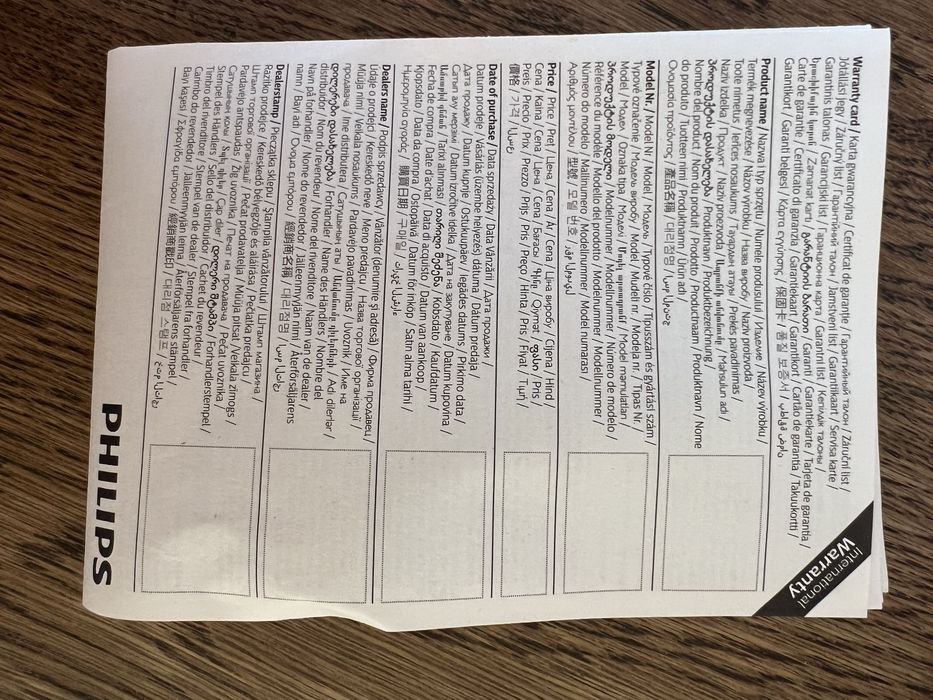 International
Warranty
Warranty card / Karta gwarancyjna / Certificat de garanţie / Гарантийный талон / Záruční list /
Jótállási jegy / Záručný list / Гарантійний талон / Jamstveni list / Garantiikaart / Servisa karte /
Garantinis talonas / Garancijski list / Гаранционна карта / Garantni list / Кепілдік талоны /
Երաշխիքային կտրոն / Zəmanət kartı / საგარანტიო ბარათი / Garanti / Garantiekarte / Tarjeta de garantía /
Carte de garantie / Certificato di garanzia / Garantiekaart / Garantikort / Cartão de garantia / Takuukortti /
Garantikort / Garanti belgesi / Κάρτα εγγύησης / 保固卡 / 품질 보증서 /
Product name / Nazwa typ sprzętu / Numele produsului / Изделие / Název výrobku /
Termék megnevezése / Názov výrobku / Назва виробу / Naziv proizvoda /
Toote nimetus / Ierīces nosaukums / Тауардың атауы / Prekės pavadinimas /
Naziv izdelka / Продукт / Naziv proizvoda / Məhsulun adı /
პროდუქტის დასახელება / Produktnavn / Produktbezeichnung /
Nombre del producto / Nom du produit / Prodotto / Productnaam / Produktnavn / Nome
do produto / Tuotteen nimi / Produktnamn / Ürün adı /
Ονομασία προϊόντος / 產品名稱 / 제품명 /
Model Nr. / Model Nr / Model / Модель / Typové číslo / Típusszám és gyártási szám /
Typové označenie / Модель виробу / Model / Mudel / Modeļa nr. / Tipas Nr. /
Model / Модел / Oznaka tipa / Модель / Model nömrəsi /
პროდუქტის მოდელი / Modelnummer / Modellnummer / Número de modelo /
Référence du modèle / Modello del prodotto / Modelnummer / Modellnummer /
Número do modelo / Mallinumero / Modellnummer / Model numarası /
Αριθμός μοντέλου / 型號 / 모델 번호 /
Price / Price / Preţ / Цена / Cena / Ár / Cena / Ціна виробу / Cijena / Hind /
Cena / Kaina / Cena / Цена / Cena / Бағасы / Գին / Qiymət / ფასი / Pris /
Preis / Precio / Prix / Prezzo / Prijs / Pris / Preço / Hinta / Pris / Fiyat / Τιμή /
價格 / 가격 /
Date of purchase / Data sprzedaży / Data Vânzării / Дата продажи /
Datum prodeje / Vásárlás (üzembe helyezés) dátuma / Dátum predaja /
Дата продажу / Datum kupnje / Ostukuupäev / Iegādes datums / Pirkimo data /
Сатып алу мерзімі / Datum izročitve izdelka / Дата на закупуване / Datum kupovine /
Վաճառքի օրը / Tarixi alınması / თარიღი შეძენა / Købsdato / Kaufdatum /
Fecha de compra / Date d'achat / Data di acquisto / Datum van aankoop /
Kjøpsdato / Data da compra / Ostopäivä / Datum för inköp / Satın alma tarihi /
Ημερομηνία αγοράς / 購買日期 / 구매일 /
Dealers name / Podpis sprzedawcy / Vânzător (denumire şi adresă) / Фирма продавец /
Údaje o prodejci / Kereskedő neve / Meno predajcu / Назва торгової організації /
Müüja nimi / Veikala nosaukums / Pardavėjo pavadinimas / Uvoznik / Име на
продавача / Ime distributera / Сатушының аты /
დილერების დასახელება / Forhandler / Name des Händlers / Nombre del
distribuidor / Nom du revendeur / Nome del rivenditore / Naam van de dealer /
Navn på forhandler / Nome do revendedor / Jälleenmyyjän nimi / Återförsäljarens
namn / Bayi adı / Όνομα εμπόρου / 經銷商名稱 / 대리점명 /
Dealerstamp / Pieczątka sklepu / Ştampila vânzătorului / Штамп магазина /
Razítko prodejce / Kereskedő bélyegzője és aláírása / Pečiatka predajcu /
Штамп торгової організації / Pečat prodavatelja / Müüja pitsat / Veikala zīmogs /
Pardavėjo antspaudas / Žig uvoznika / Печат на продавача / Pečat uvoznika /
Сатушының мөрі / Forhandlerstempel /
Stempel des Händlers / Sello del distribuidor / Cachet du revendeur /
Timbro del rivenditore / Stempel van de dealer / Stempel fra forhandler /
Carimbo do revendedor / Jälleenmyyjän leima / Återförsäljarens stämpel /
Bayi kaşesi / Σφραγίδα εμπόρου / 經銷商戳印 / 대리점 스탬프 /
PHILIPS